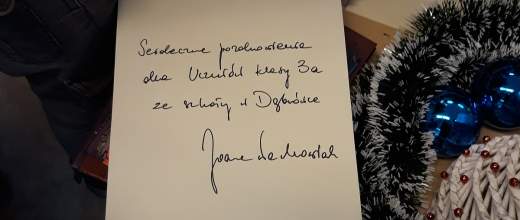 Serdeczne pozdrowienia
dla Uczniów klasy 3a
ze szkoły w Dąbrówce
Joanna